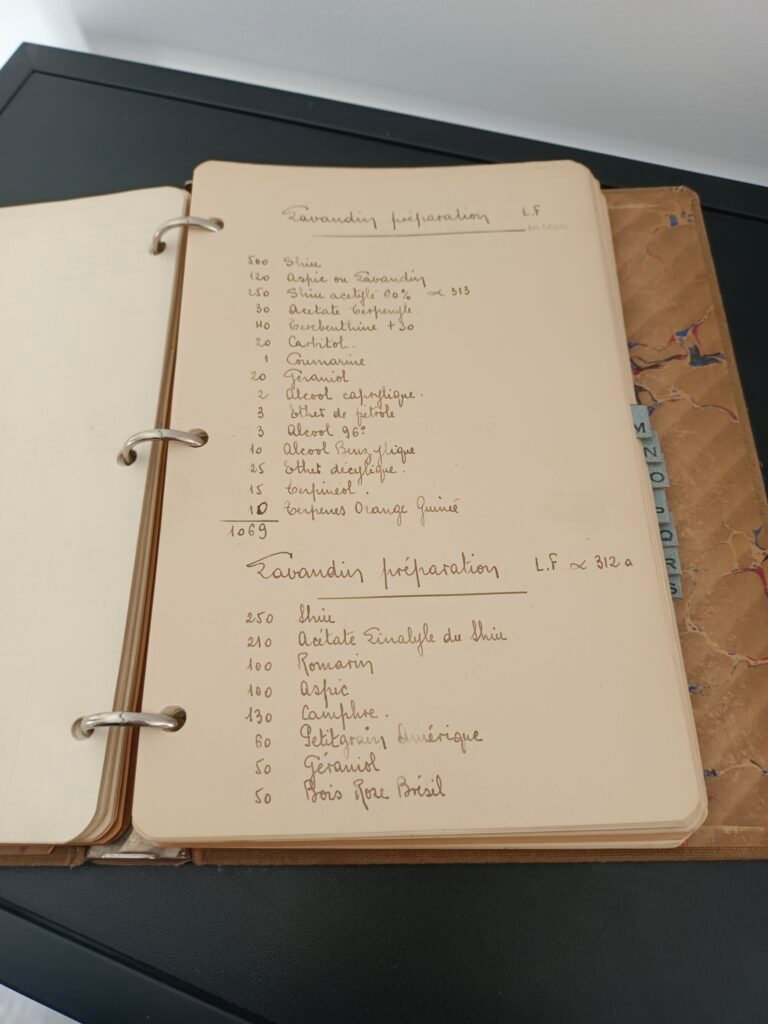 Lavandin préparation L.F
en cours
500 Shiu
120 Aspic ou Lavandin
250 Shiu acetylé 60% ∝ 313
30 Acetate terpenyle.
40 Terebenthine + 30
20 Carbitol.
1 Coumarine
20 Géraniol
2 Alcool caprylique.
3 Ether de pétrole
3 Alcool 96°
10 Alcool Benzylique
25 Ether décylique.
15 Terpineol.
10 Terpenes Orange Guinée
1069
Lavandin préparation L.F ∝ 312 a
250 Shiu
210 Acétate Linalyle du Shiu
100 Romarin
100 Aspic
130 Camphre.
60 Petitgrain Amérique
50 Géraniol
50 Bois Rose Brésil
M
N
O
P
Q
R
S